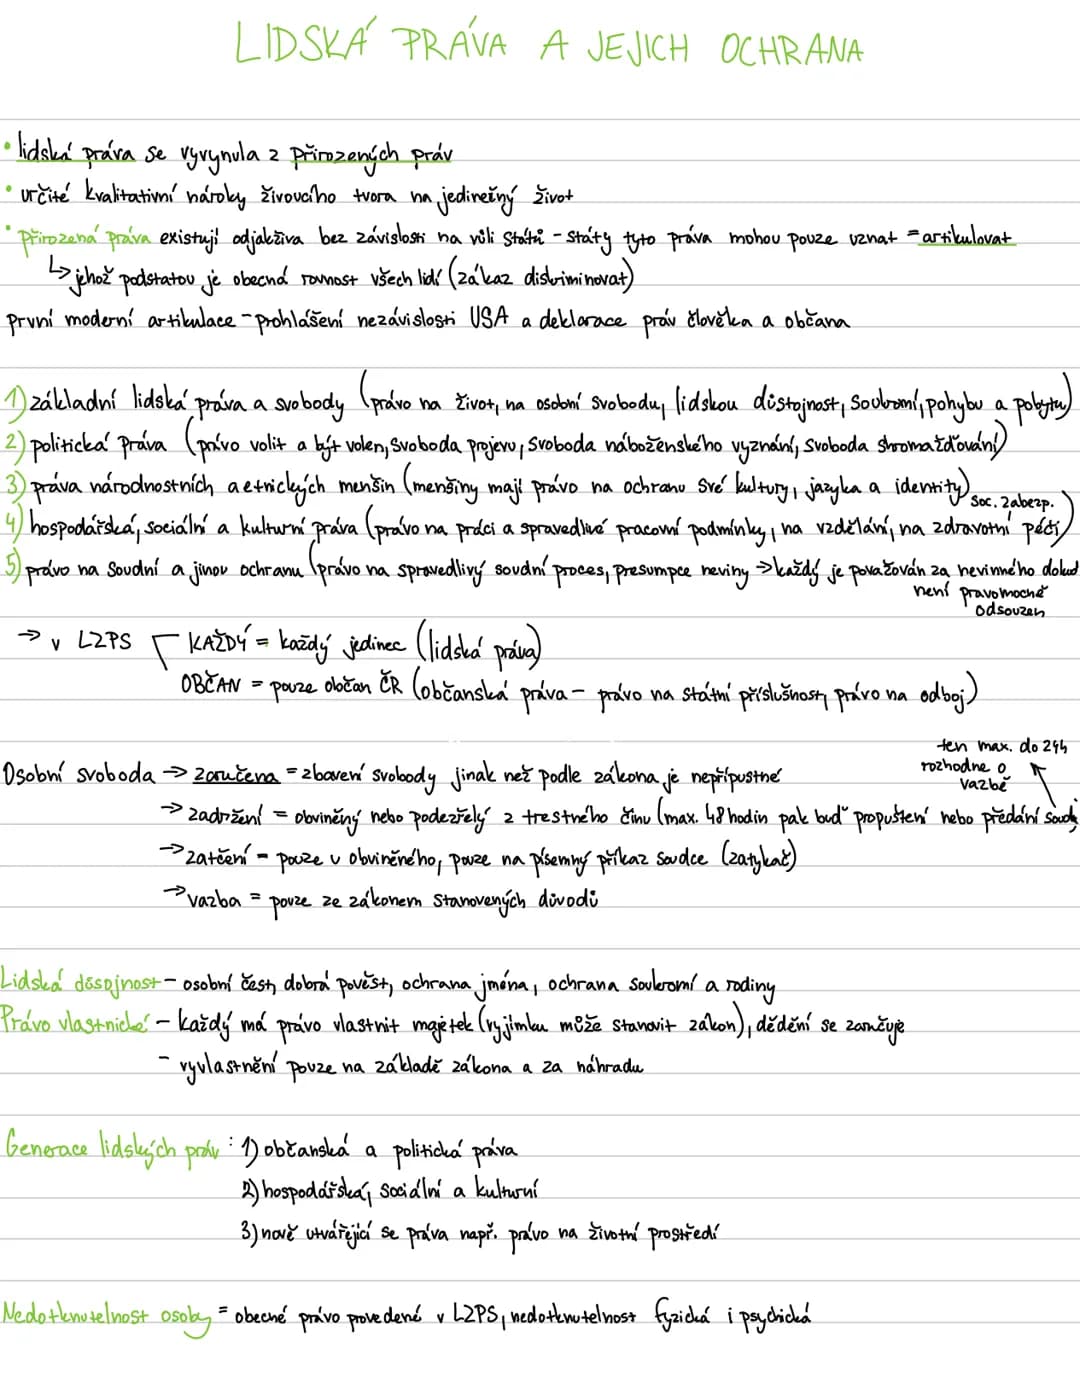 LIDSKÁ PRÁVA A JEJICH OCHRANA
• lidská práva se vyvynula z přirozených práv
• určité kvalitativní nároky živoucího tvora na jedinečný život
• přirozená práva existují odjakživa bez závislosti na vůli států - státy tyto práva mohou pouze uznat = artikulovat
↳ jehož podstatou je obecná rovnost všech lidí (zákaz diskriminovat)
první moderní artikulace - prohlášení nezávislosti USA a deklarace práv člověka a občana
1) základní lidská práva a svobody (právo na život, na osobní svobodu, lidskou důstojnost, soukromí, pohybu a pobytu)
2) politická práva (právo volit a být volen, svoboda projevu, svoboda náboženského vyznání, svoboda shromažďování)
3) práva národnostních a etnických menšin (menšiny mají právo na ochranu své kultury, jazyka a identity)
soc. zabezp.
4) hospodářská, sociální a kulturní práva (právo na práci a spravedlivé pracovní podmínky, na vzdělání, na zdravotní péči)
5) právo na soudní a jinou ochranu (právo na spravedlivý soudní proces, presumpce neviny → každý je považován za nevinného dokud
není pravomocně
odsouzen
→ v LZPS KAŽDÝ = každý jedinec (lidská práva)
OBČAN = pouze občan ČR (občanská práva - právo na státní příslušnost, právo na odboj)
ten max. do 24h
rozhodne o
vazbě
Osobní svoboda → zaručena = zbavení svobody jinak než podle zákona je nepřípustné
→ zadržení = obviněný nebo podezřelý z trestného činu (max. 48 hodin pak buď propuštení nebo předání soudu
→ zatčení - pouze u obviněného, pouze na písemný příkaz soudce (zatykač)
→ vazba = pouze ze zákonem stanovených důvodů
Lidská dúsojnost - osobní čest, dobrá pověst, ochrana jména, ochrana soukromí a rodiny
Právo vlastnické - každý má právo vlastnit majetek (vyjímku může stanovit zákon), dědění se zaručuje
- vyvlastnění pouze na základě zákona a za náhradu
Generace lidských práv : 1) občanská a politická práva
2) hospodářská, sociální a kulturní
3) nově utvářející se práva např. právo na životní prostředí
Nedotknutelnost osoby = obecné právo provedené v LZPS, nedotknutelnost fyzická i psychická